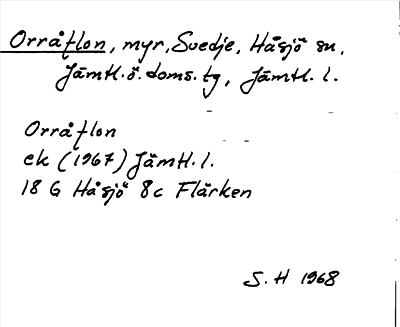 Orråflon, myr, Svedje, Håsjö sn,
Jämtl.ö.doms.tg, Jämtl. l.
Orråflon
ek (1967) Jämtl. l.
18 G Håsjö 8c Flärken
S. H 1968